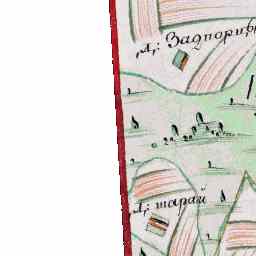 д: Задпорив
д: тарай